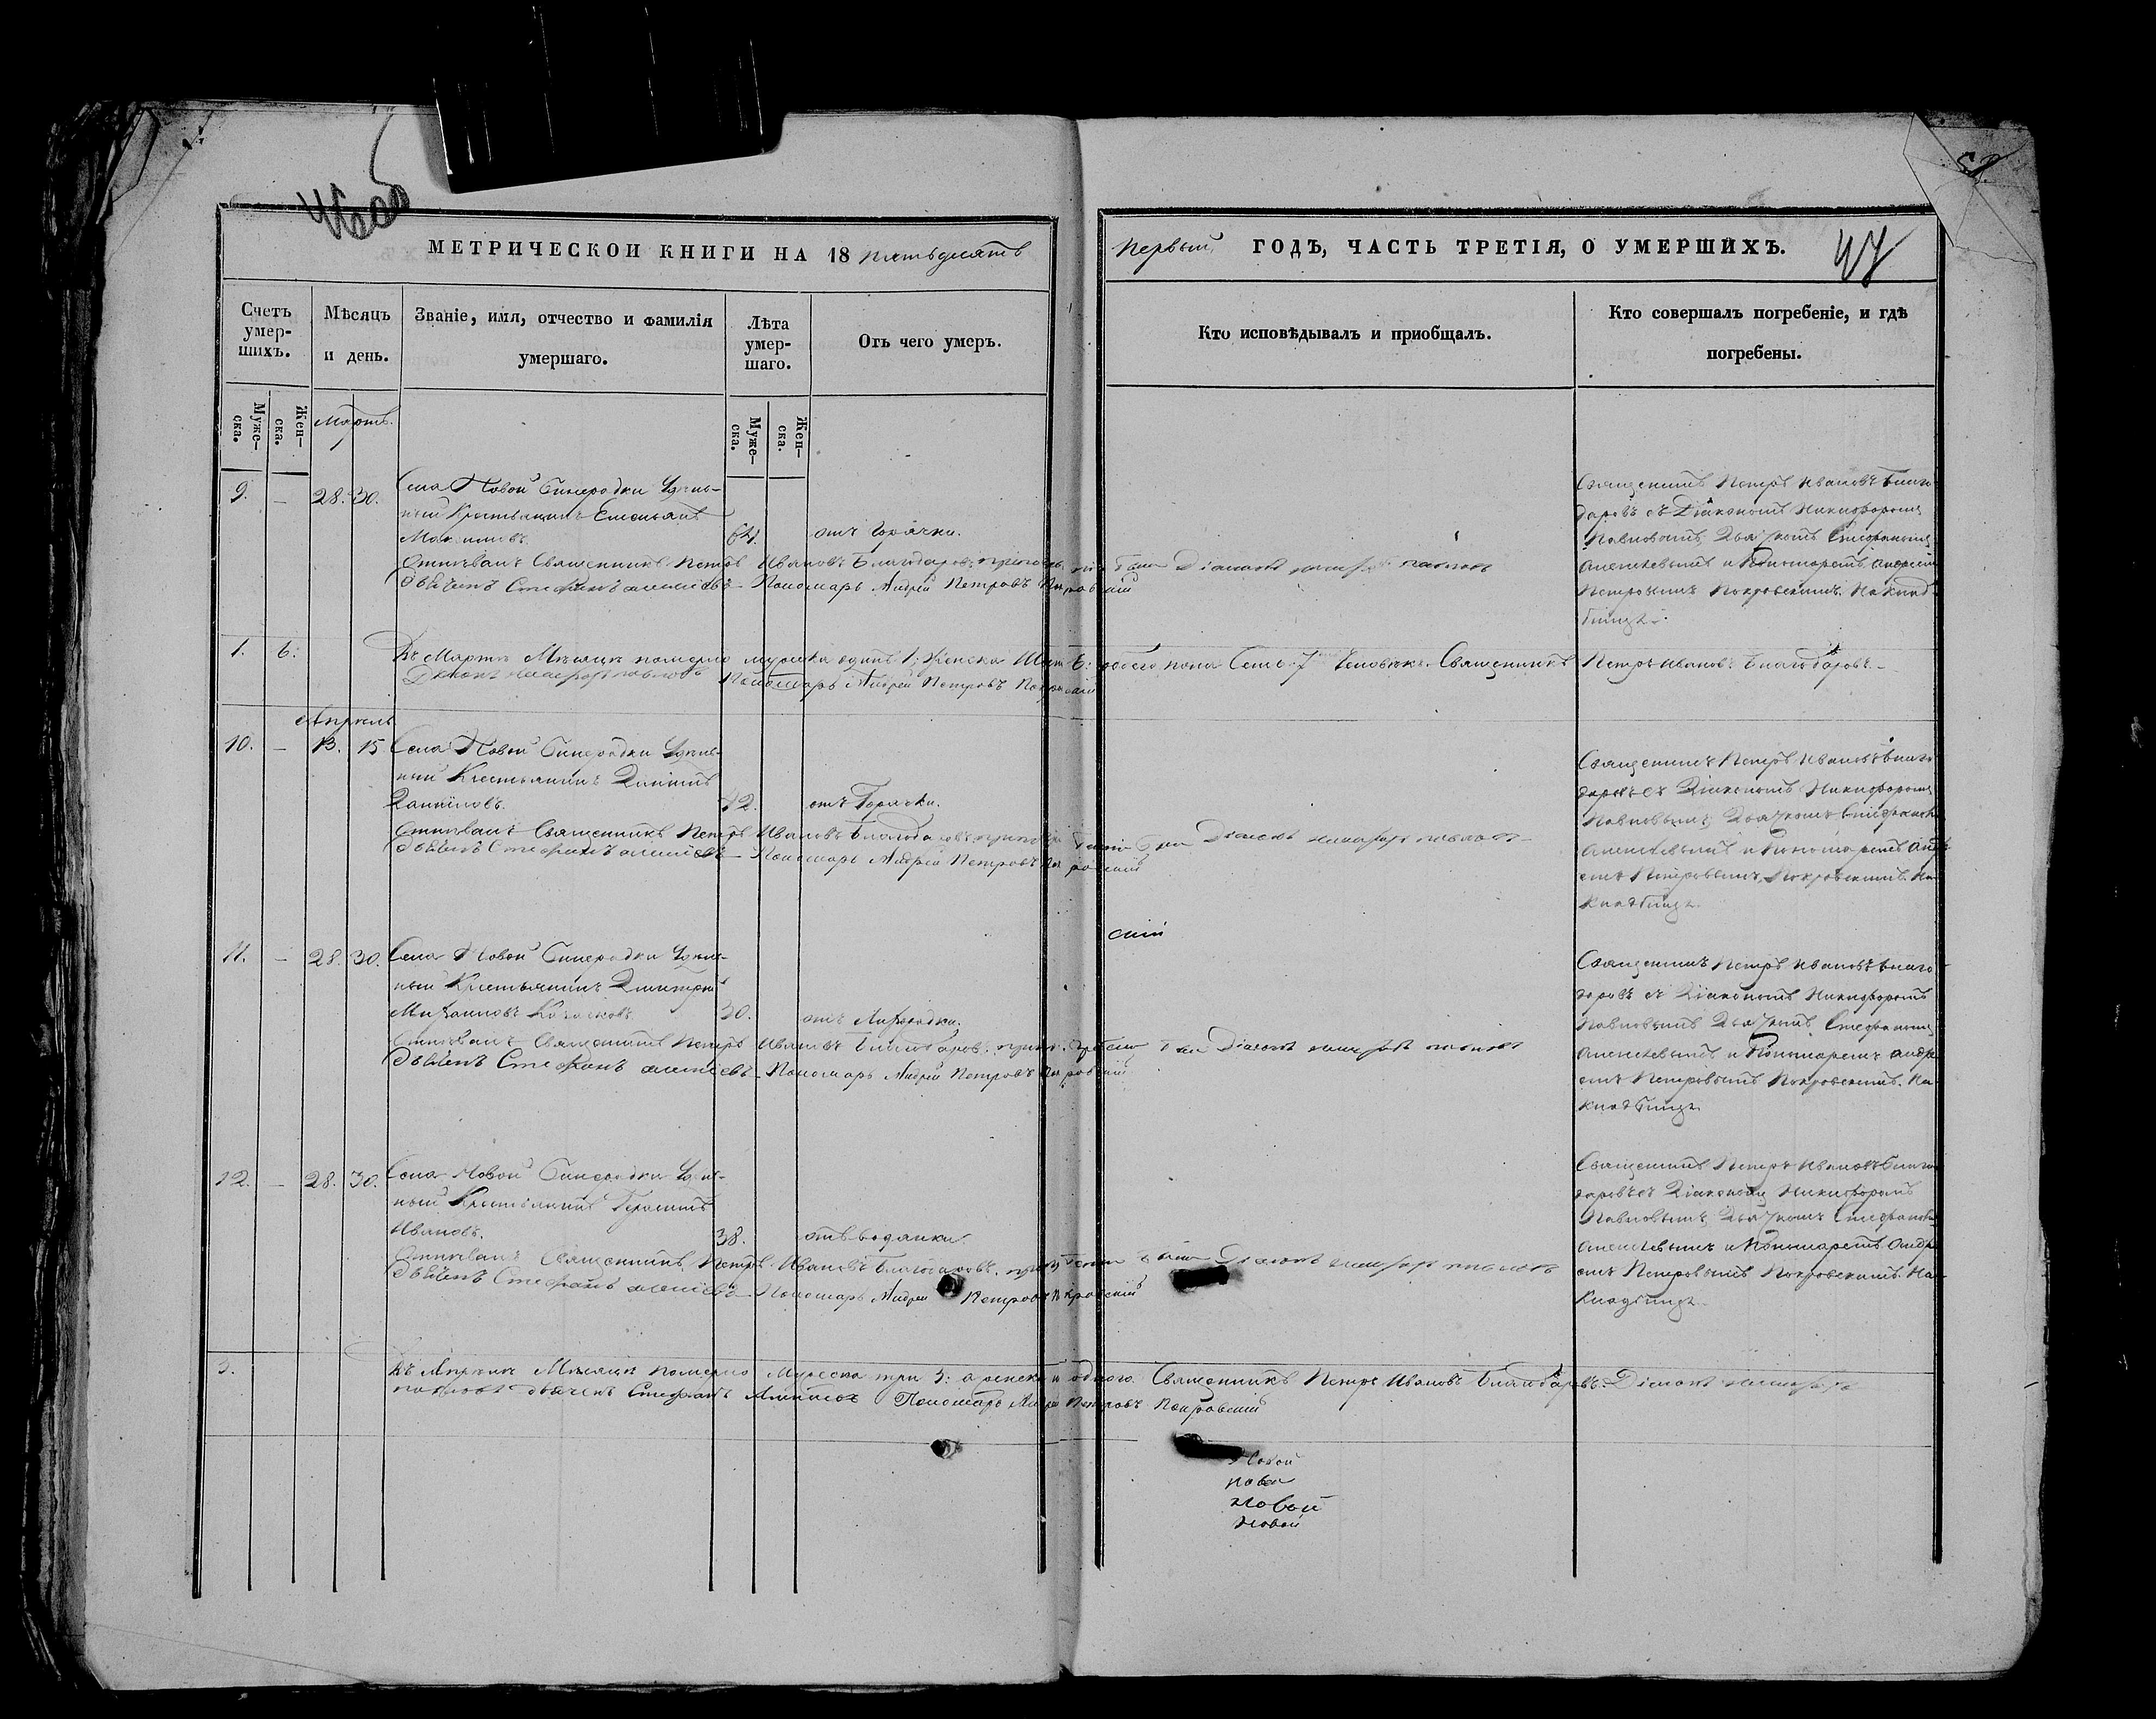 46 об
52.
МЕТРИЧЕСКОЙ КНИГИ НА 18 пятьдесятъ
первый ГОДЪ, ЧАСТЬ ТРЕТІЯ, О УМЕРШИХЪ.
47
Счетъ умер-шихъ.
Мѣсяцъ и день.
Званіе, имя, отчество и фамилія умершаго.
Лѣта умер-шаго.
Отъ чего умеръ.
Кто исповѣдывалъ и пріобщалъ.
Кто совершалъ погребеніе, и гдѣ погребены.
Муже-ска.
Жен-ска.
Мартъ.
Муже-ска.
Жен-ска.
9. – 28. 30. Села Новой Бинерадки Удѣль-
ный Крестьянинъ Емельянъ
64. отъ горячки.
Отпѣвалъ Священникъ Петръ Ивановъ Благодаровъ при
Дьячекъ Стефанъ Пономарь Андрей Петровъ Покровскій
Священникъ Петръ Ивановъ Благо-
даровъ съ Діакономъ Никифоромъ
Павловымъ, Дьячкомъ Стефаномъ
Алексѣевымъ и Пономаремъ Андреемъ
Петровымъ Покровскимъ. На клад-
бищѣ.
1. 6. Въ Мартѣ Мѣсяцѣ померло мужеска одинъ 1; женска 6: обоего пола Семь 7 человѣкъ. Священникъ Петръ Ивановъ Благодаровъ.
Пономарь Андрей Петровъ Покровскій
Апрель
10. – 13. 15. Села Новой Бинерадки Удѣль-
ный Крестьянинъ Даніилъ
Данииловъ. 42. отъ Горячки.
Отпѣвалъ Священникъ Петръ Ивановъ Благодаровъ
Дьячекъ Стефанъ Пономарь Андрей Петровъ Покровскій
Священникъ Петръ Ивановъ Благо-
даровъ съ Діакономъ Никифоромъ
Павловымъ, Дьячкомъ Стефаномъ
Алексѣевымъ и Пономаремъ Андре-
емъ Петровымъ Покровскимъ. На
кладбищѣ.
скій
11. – 28. 30. Села Новой Бинерадки Удѣль-
ный Крестьянинъ Димитрій
Михаиловъ 30. отъ Лихорадки.
Отпѣвалъ Священникъ Петръ Ивановъ Благодаровъ
Дьячекъ Стефанъ Пономарь Андрей Петровъ Покровскій
Священникъ Петръ Ивановъ Благо-
даровъ съ Діакономъ Никифоромъ
Павловымъ Дьячкомъ Стефаномъ
Алексѣевымъ и Пономаремъ Андре-
емъ Петровымъ Покровскимъ. На
кладбищѣ.
12. – 28. 30. Села Новой Бинерадки Удѣль-
ный Крестьянинъ Герасимъ
Ивановъ. 38. отъ водянки.
Отпѣвалъ Священникъ Петръ Ивановъ Благодаровъ
Дьячекъ Стефанъ Пономарь Андрей Петровъ Покровскій
Священникъ Петръ Ивановъ Благо-
даровъ съ Діакономъ Никифоромъ
Павловымъ, Дьячкомъ Стефаномъ
Алексѣевымъ и Пономаремъ Андре-
емъ Петровымъ Покровскимъ. На
Кладбищѣ.
3. Въ Апрѣлѣ Мѣсяцѣ померло Мужеска три 3: а женска ни одного. Священникъ Петръ Ивановъ Благодаровъ. Діаконъ
Дьячекъ Стефанъ Пономарь Андрей Петровъ Покровскій
Новой
нова
новой
новой